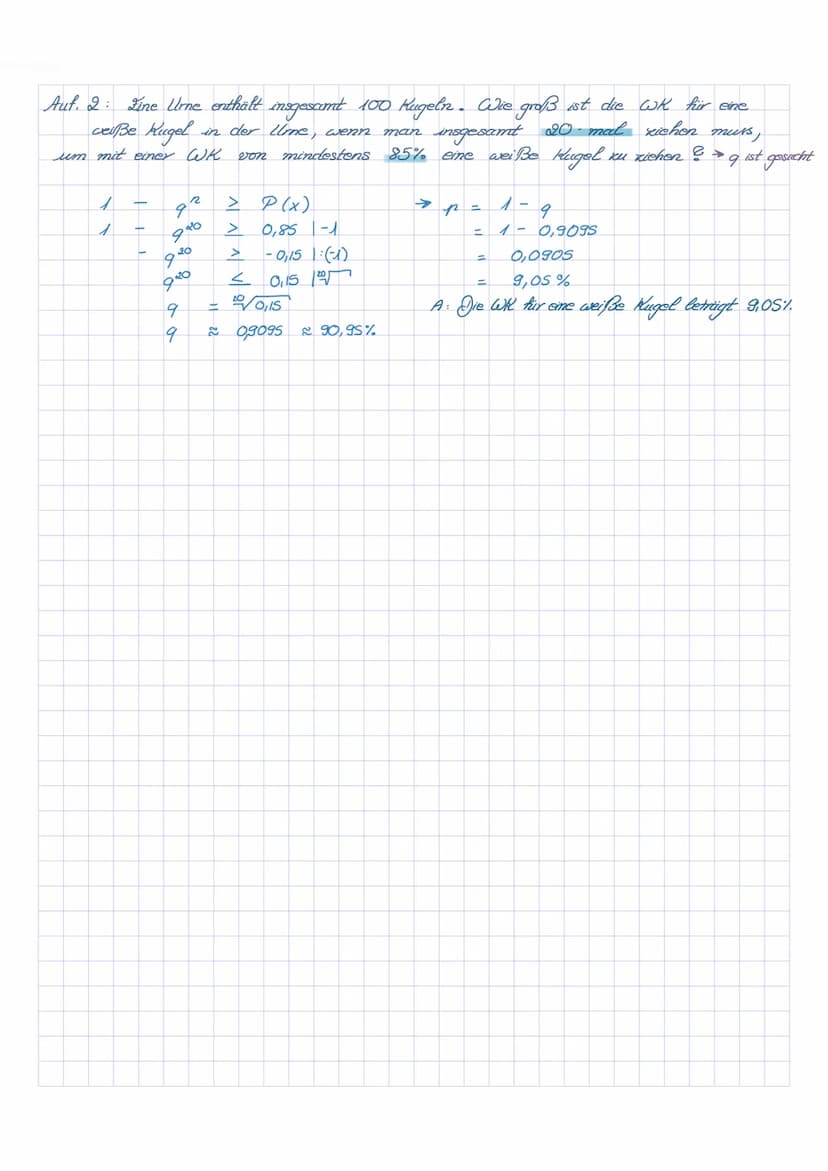 Auf. 2: Eine Urne enthält insgesamt 100 Kugeln. Wie groß ist die WK für eine
weiße Kugel in der Urne, wenn man insgesamt 20-mal ziehen muss,
um mit einer WK von mindestens 85% eine weiße Kugel zu ziehen? → q ist gesucht
1 - qⁿ ≥ P(x)
1 - q²⁰ ≥ 0,85 |-1
- q²⁰ ≥ -0,15 |:(-1)
q²⁰ ≤ 0,15 |²⁰√
q = ²⁰√0,15
q ≈ 0,9095 ≈ 90,95%
→ p = 1 - q
= 1 - 0,9095
= 0,0905
= 9,05 %
A: Die WK für eine weiße Kugel beträgt 9,05%.